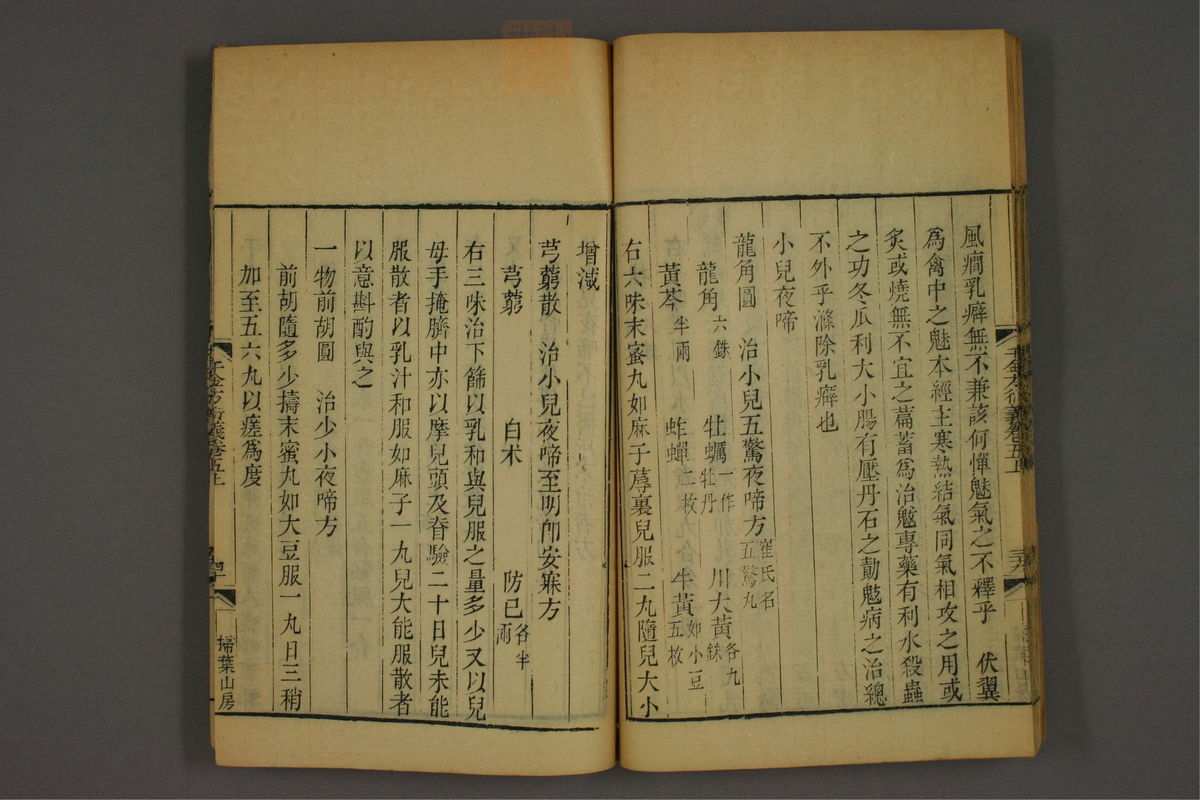 風癎乳癖無不兼該何憚魃氣之不釋乎　伏翼
爲禽中之魃本經主寒熱結氣同氣相攻之用或
炙或燒無不宜之篇蓄爲治魃專藥有利水殺蟲
之功冬瓜利大小腸有壓丹石之勣魃病之治總
不外乎滌除乳癖也
小兒夜啼
龍角圓　治小兒五驚夜啼方崔氏名五驚丸
龍角六銖　牡蠣一作牡丹　川大黃各九銖
黃芩半兩　蚱蟬二枚　牛黃如小豆五枚
右六味末蜜丸如麻子蓐裏兒服二丸隨兒大小
千金方衍義卷五上
增減
芎藭散　治小兒夜啼至明卽安寐方
芎藭　白朮　防已各半兩
右三味治下篩以乳和與兒服之量多少又以兒
母手掩臍中亦以摩兒頭及脊驗二十日兒未能
服散者以乳汁和服如麻子一丸兒大能服散者
以意斟酌與之
一物前胡圓　治少小夜啼方
前胡隨多少擣末蜜丸如大豆服一丸日三稍
加至五六丸以瘥爲度
千金方衍義卷五上
掃葉山房